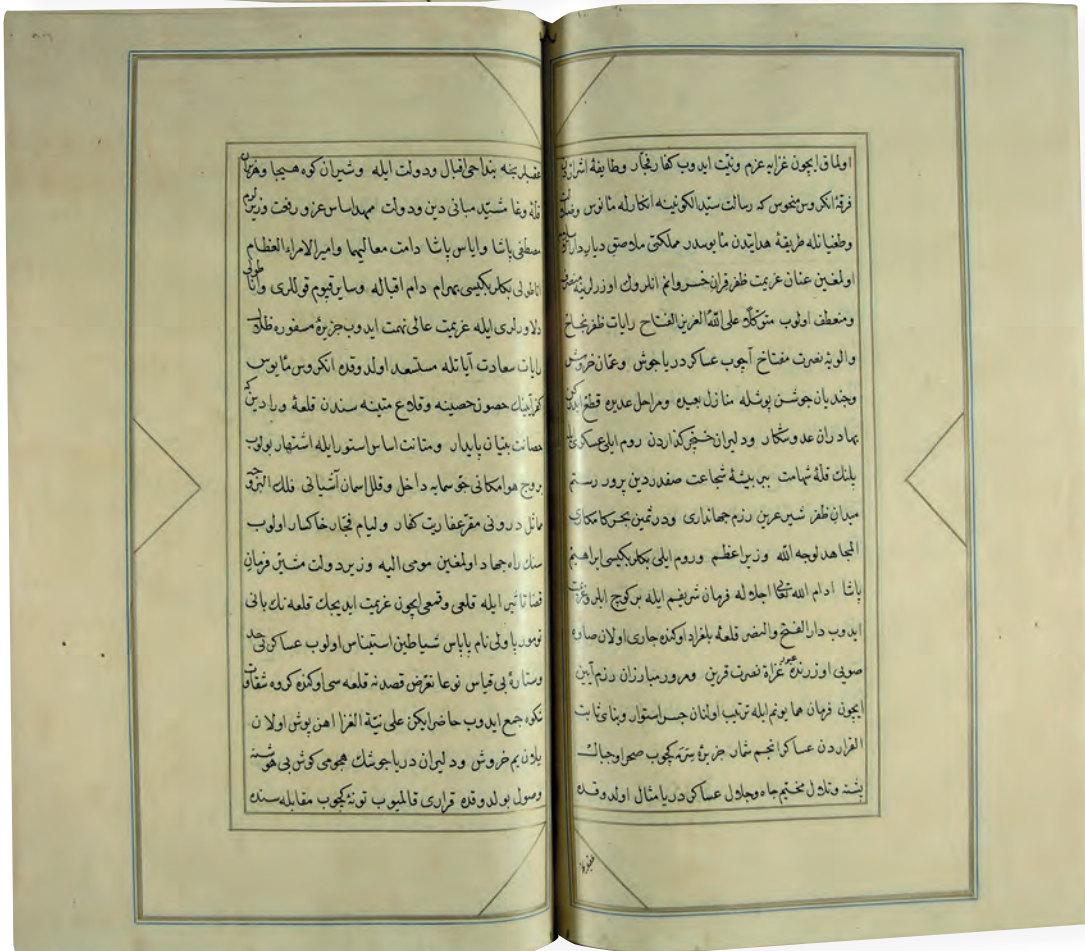 اولماق ایچون غزایه عزم ونیّت ایدوب کفار فجّار وطایفۀ اشرار
فرقۀ انکروس منحوس که رسالت سیّد الکونینه انکارله مأنوس وضلالت
وطغیانله طریقۀ هدایتدن مأیوسدر مملکتی ملاصق دیار دار
اولغین عنان عزیمت ظفر قران خسروانم انلروک اوزرلرینه منصرف
ومنعطف اولوب متوکّلاً علی الله العزیز الفتاح رایات ظفرنجاح
والویۀ نصرت مفتاح آچوب عساکر دریاجوش وعمّان خروش
وجندیان جوشن پوشله منازل بعیده ومراحل عدیده قطع
بهادران عدوشکار ودلیران خنجرکذاردن روم ایلی عسکری
پلنك قلۀ شهامت ببر بیشۀ شجاعت صفدر دین پرور رستم
میدان ظفر شیر عرین رزم جهانداری ودرّ ثمین بحر کامکاری
المجاهد لوجه الله وزیر اعظم وروم ایلی بکلربکیسی ابراهیم
پاشا ادام الله تعالی اجلاله فرمان شریفم ایله بر کوچ ایلرو
ایدوب دار الفتح والنصر قلعۀ بلغراد اوکنده جاری اولان صاوه
صویی اوزرنده عبور غزاة نصرت قرین ومرور مبارزان رزم آیین
ایچون فرمان همایونم ایله ترتیب اولنان جسر استوار وبنای ثابت
القراردن عساکر انجم شمار جزیرۀ سرمه کچوب صحرا وجبال
پشته وتلال مخیّم جاه وجلال عساکر دریامثال اولدوقده
عقبلرنجه بنداخی اقبال ودولت ایله وشیران کوه هیجا
قلۀ وغا مشیّد مبانی دین ودولت ممهد اساس عزّ ورفعت وزیرلرم
مصطفی پاشا وایاس پاشا دامت معالیهما وامیر الامراء العظام
اناطولی بکلربکیسی بهرام دام اقباله وسایر قپوم قوللری واناطولی
دلاورلری ایله عزیمت عالی نهمت ایدوب جزیرۀ مسفوره
رایات سعادت آیاتله مستسعد اولدوقده انکروس مأیوس
حصون حصینه وقلاع متینه سندن قلعۀ ورادین که
حصانت بنیان پایدار ومتانت اساس استورایله اشتهار بولوب
بروج هوا مکانی جوّ سمایه داخل وقلل اسمان آشیانی فلك البروجه
مماثل درونی مقرّ عفاریت کفار ولیام فجّار خاکسار اولوب
سنك راه جهاد اولمغین مومی الیه وزیر دولت متین فرمان
قضا تأثیرم ایله قلعی وقمعی ایچون عزیمت ایدیجك قلعه نك بانی
توموری پاولی نام پاپاس شیاطین استیناس اولوب عساکر بی حد
وستارۀ بی قیاس نوعا تعرّض قصدنه قلعه سی اوکنده کروه شقاوت
شکوه جمع ایدوب حاضر ایکن علی نیّة الغزا اهن پوش اولان
یلان یم خروش ودلیران دریاجوشك هجومی کوش بی هوشنه
وصول بولدوقده قراری قالمیوب تونه یی کچوب مقابله سنده